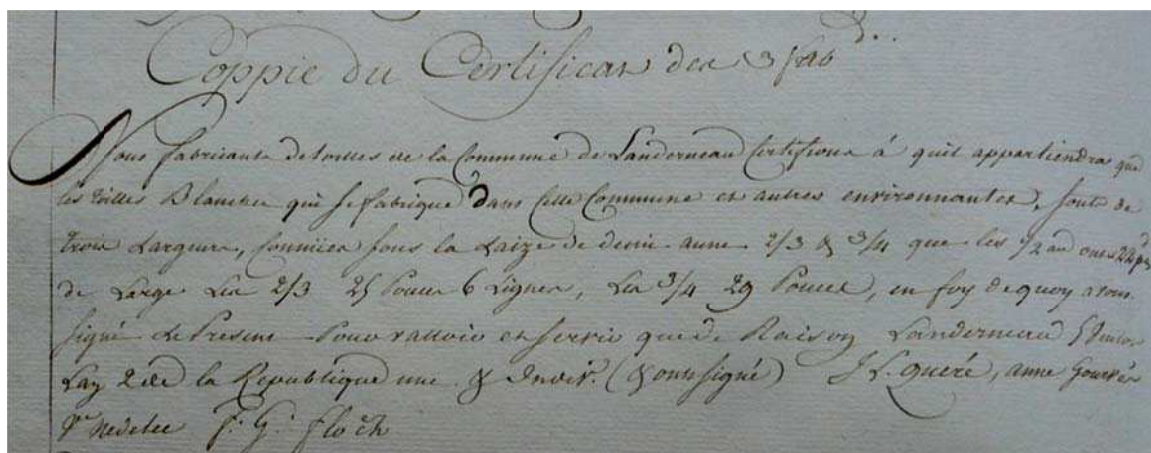 Coppie du Certificat des 3 fab
Nous fabricants de toilles de la Commune de Landerneau Certifions à quil appartiendra que
les toilles Blanches qui se fabrique dans cette Commune et autres environnantes, sont de
trois Largeurs, Connües sous la Laize de demi aune 2/3 & 3/4 que les 1/2 aunes ont 22 p
de Large Les 2/3 25 Pouces 6 Lignes, Les 3/4 29 Pouces, en foy de quoy avons
signé Le Présent Pour valloir et servir que de Raison Landerneau 5
L'an 2 de la République une & Indiv. (& ont signé) J L. queré, anne Gourvès
Ve Nedelec F. G. floch